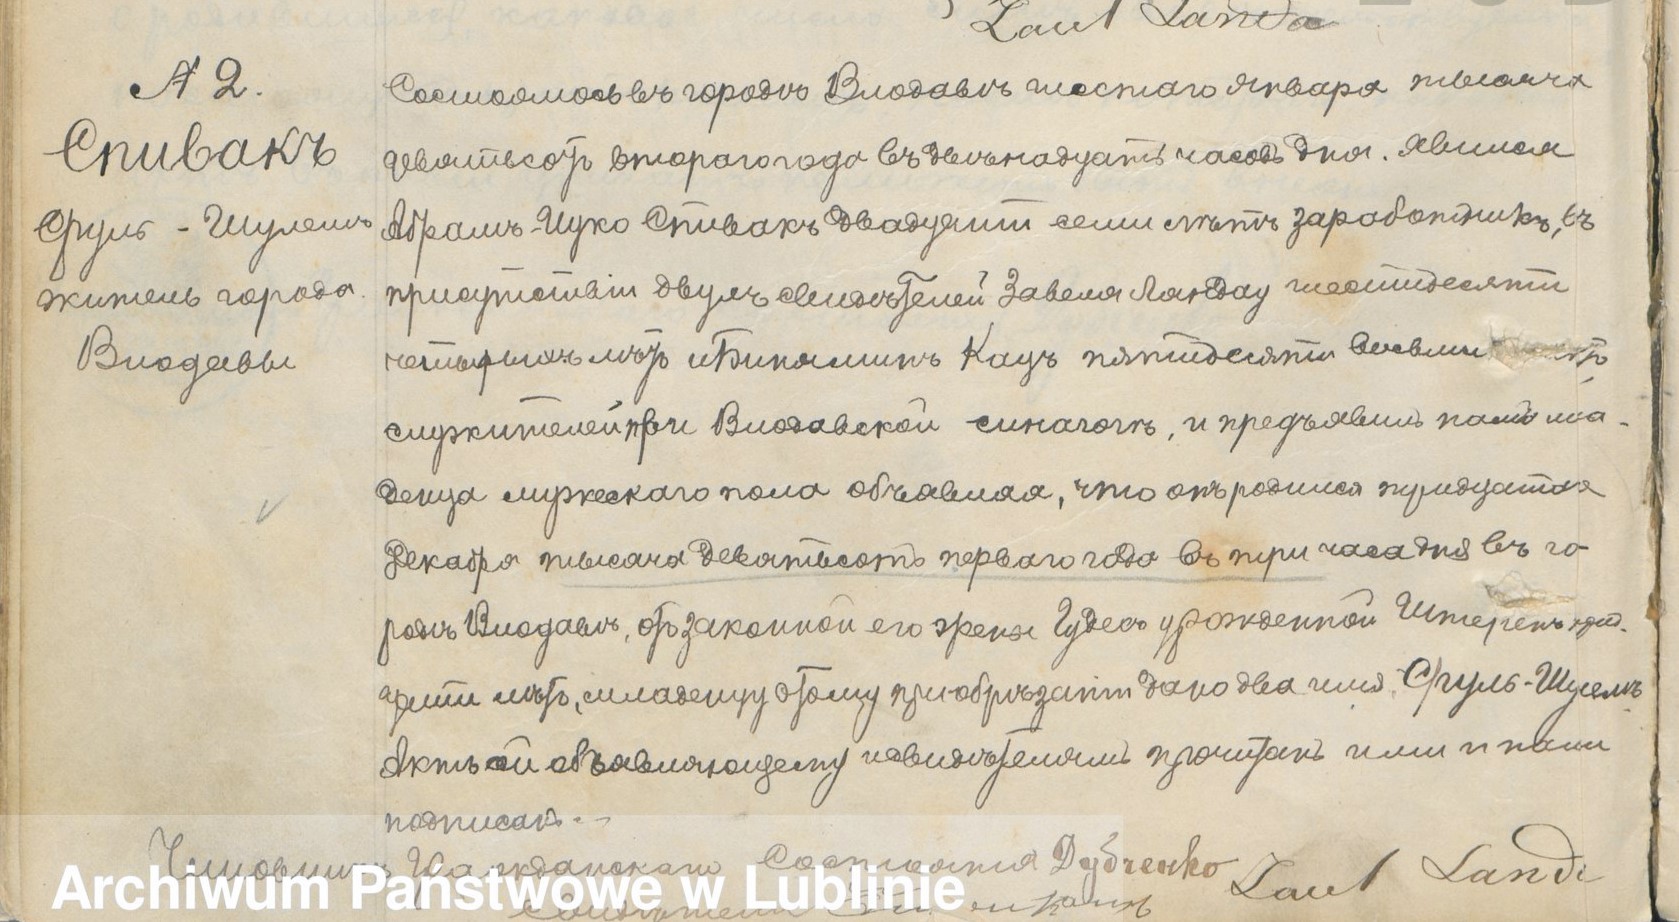 Zawl Landa
№ 2.
Спивакъ
Сруль - Шулемъ
житель города
Влодавы
Состоялось въ городѣ Влодавѣ шестаго января тысяча
девятьсотъ втораго года въ двѣнадцать часовъ дня. Явился
Абрамъ-Ицко Спивакъ двадцати семи лѣтъ заработникъ, въ
присутствіи двухъ свидѣтелей Завеля Ландау шестидесяти
четырехъ лѣтъ и Биньяминъ Кацъ пятидесяти восьми лѣтъ,
служителей при Влодавской синагогѣ, и предъявилъ намъ мла-
денца мужескаго пола объявляя, что онъ родился тридцатая
Декабря тысяча девятьсотъ перваго года въ три часа дня въ го-
родѣ Влодавѣ, отъ законной его жены Гудесъ урожденной Штернъ двад-
цати лѣтъ, младенцу этому при обрѣзаніи дано два имя Сруль-Шулемъ
Актъ сей объявляющему и свидѣтелямъ прочитанъ ими и нами
подписанъ.
Чиновникъ Гражданскаго Состоянія Дубченко Zawl Landa
Свидѣтели
Archiwum Państwowe w Lublinie